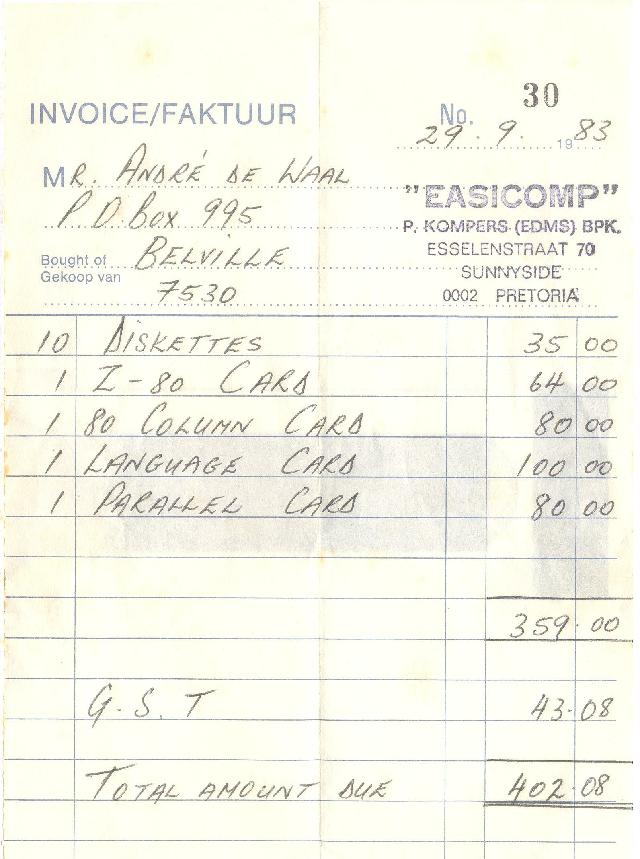 INVOICE/FAKTUUR
No. 30
29 . 9 . 1983
MR. ANDRÉ DE WAAL
P.O. BOX 995
Bought of
Gekoop van
BELVILLE
7530
"EASICOMP"
P. KOMPERS (EDMS) BPK.
ESSELENSTRAAT 70
SUNNYSIDE
0002 PRETORIA
10 DISKETTES 35 00
1 Z-80 CARD 64 00
1 80 COLUMN CARD 80 00
1 LANGUAGE CARD 100 00
1 PARALLEL CARD 80 00
359.00
G.S.T 43.08
TOTAL AMOUNT DUE 402.08